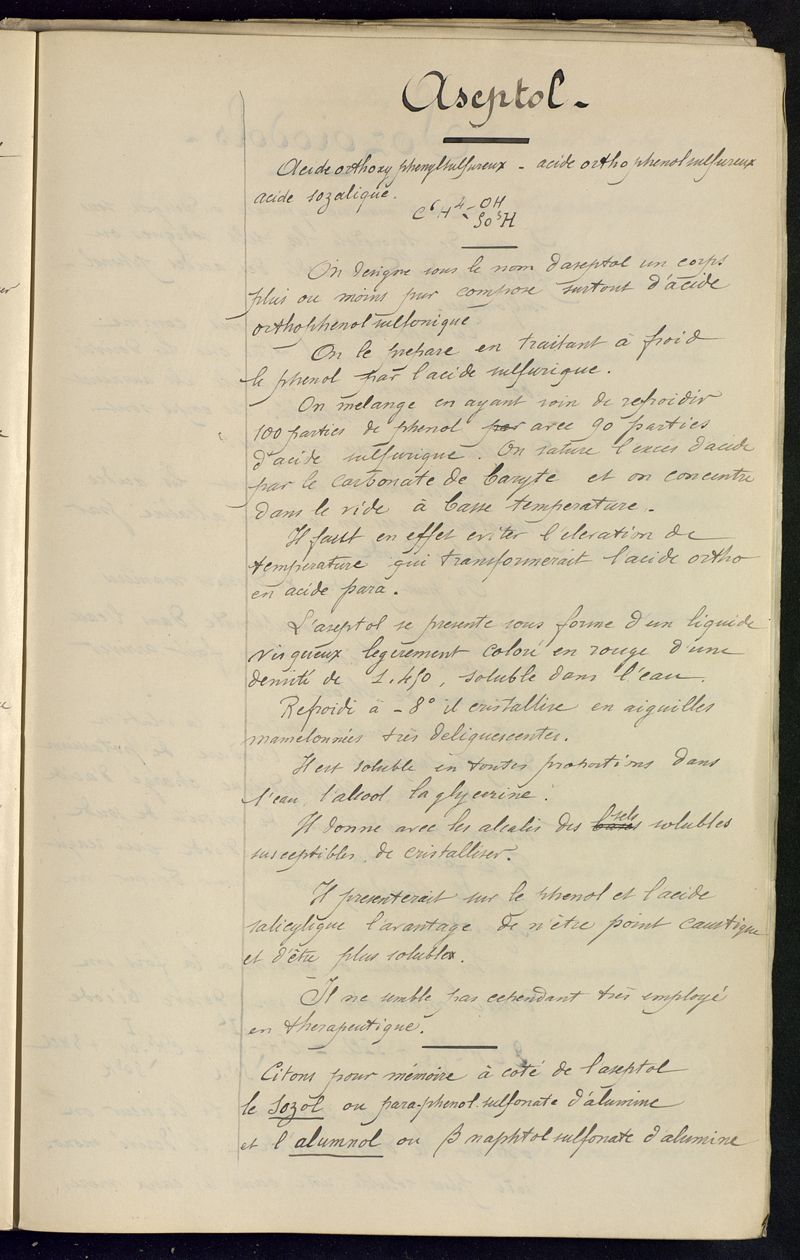 Aseptol -
Acide orthoxyphenylsulfureux - acide orthophenolsulfureux
acide sozolique.
C⁶H⁴ < OH
SO³H
On designe sous le nom d'aseptol un corps
plus ou moins pur compose surtout d'acide
orthophenolsulfonique
On le prepare en traitant à froid
le phenol par l'acide sulfurique.
On melange en ayant soin de refroidir
100 parties de phenol par avec 90 parties
d'acide sulfurique. On sature l'exces d'acide
par le carbonate de baryte et on concentre
dans le vide à basse temperature.
Il faut en effet eviter l'elevation de
temperature qui transformerait l'acide ortho
en acide para.
L'aseptol se presente sous forme d'un liquide
visqueux legerement coloré en rouge d'une
densité de 1.450, soluble dans l'eau.
Refroidi à - 8° il cristallise en aiguilles
mamelonnées très deliquescentes.
Il est soluble en toutes proportions dans
l'eau, l'alcool la glycerine.
Il donne avec les alcalis des bases sels solubles
susceptibles de cristalliser.
Il presenterait sur le phenol et l'acide
salicylique l'avantage de n'être point caustique
et d'être plus soluble.
Il ne semble pas cependant très employé
en therapeutique.
Citons pour mémoire à coté de l'aseptol
le Sozol ou para-phenol-sulfonate d'alumine
et l'alumnol ou β naphtolsulfonate d'alumine